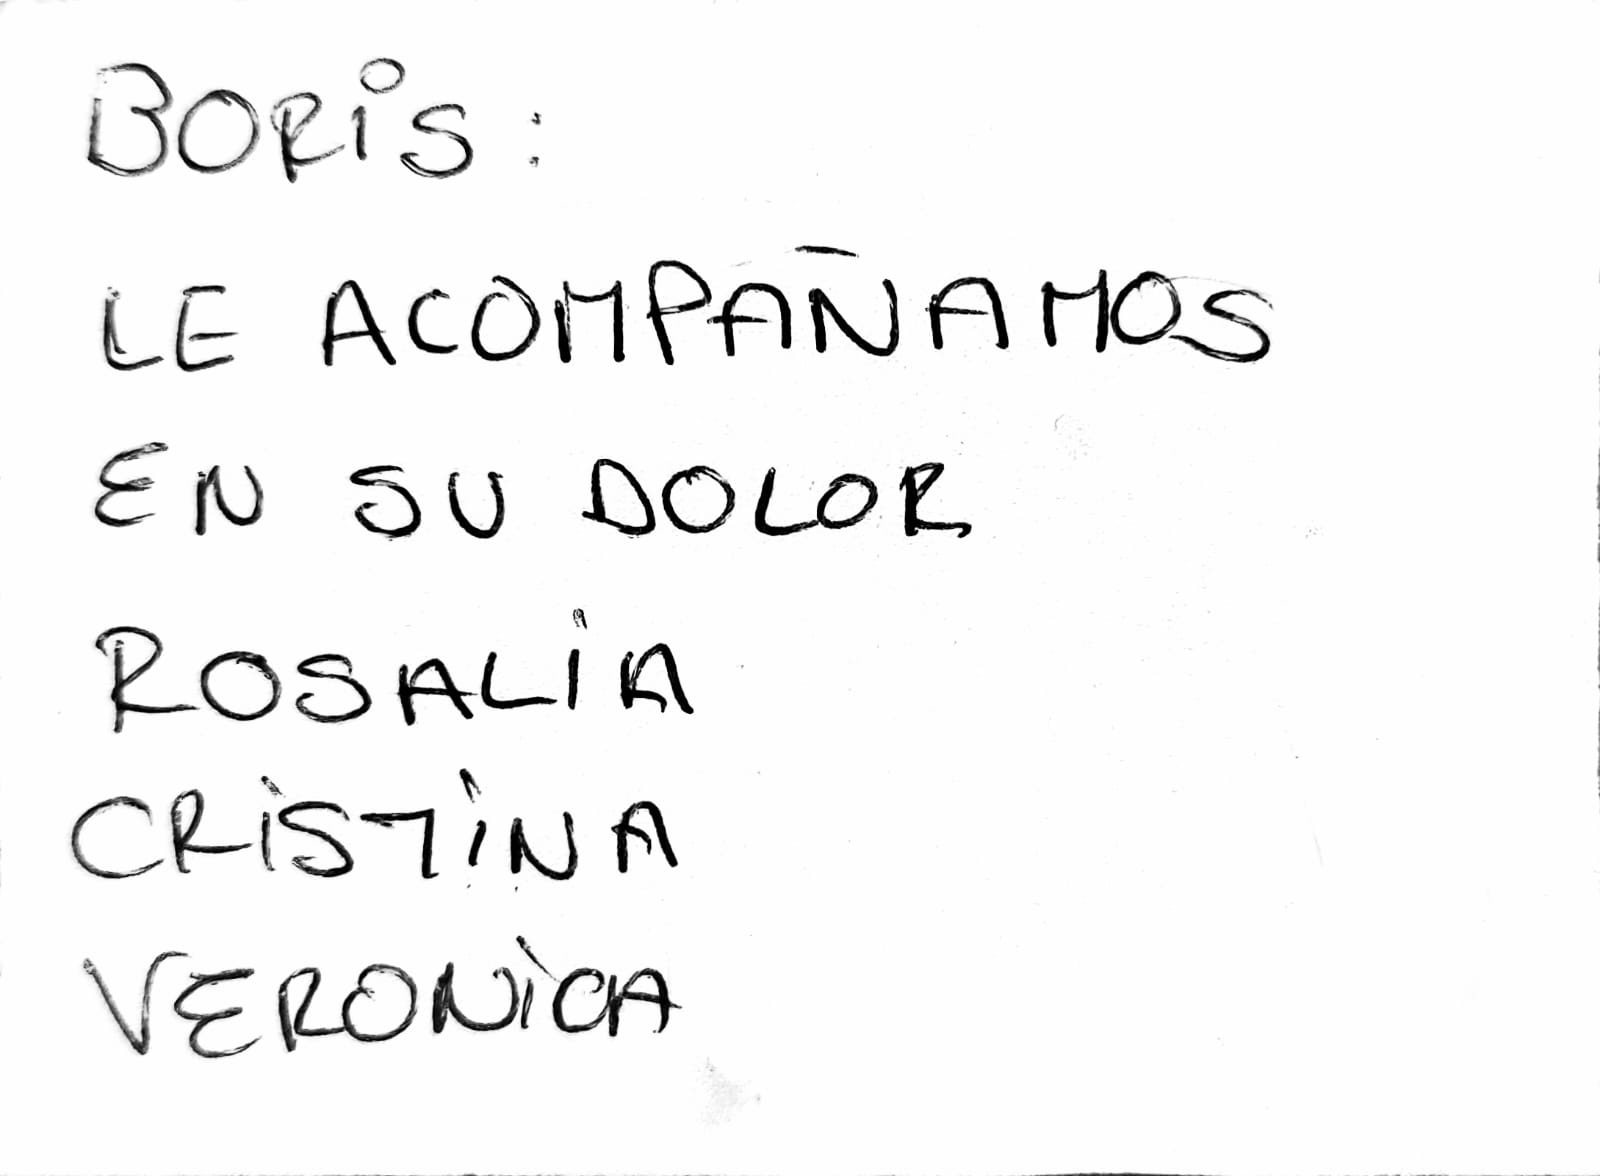 BORIS:
LE ACOMPAÑAMOS
EN SU DOLOR
ROSALIA
CRISTINA
VERONICA